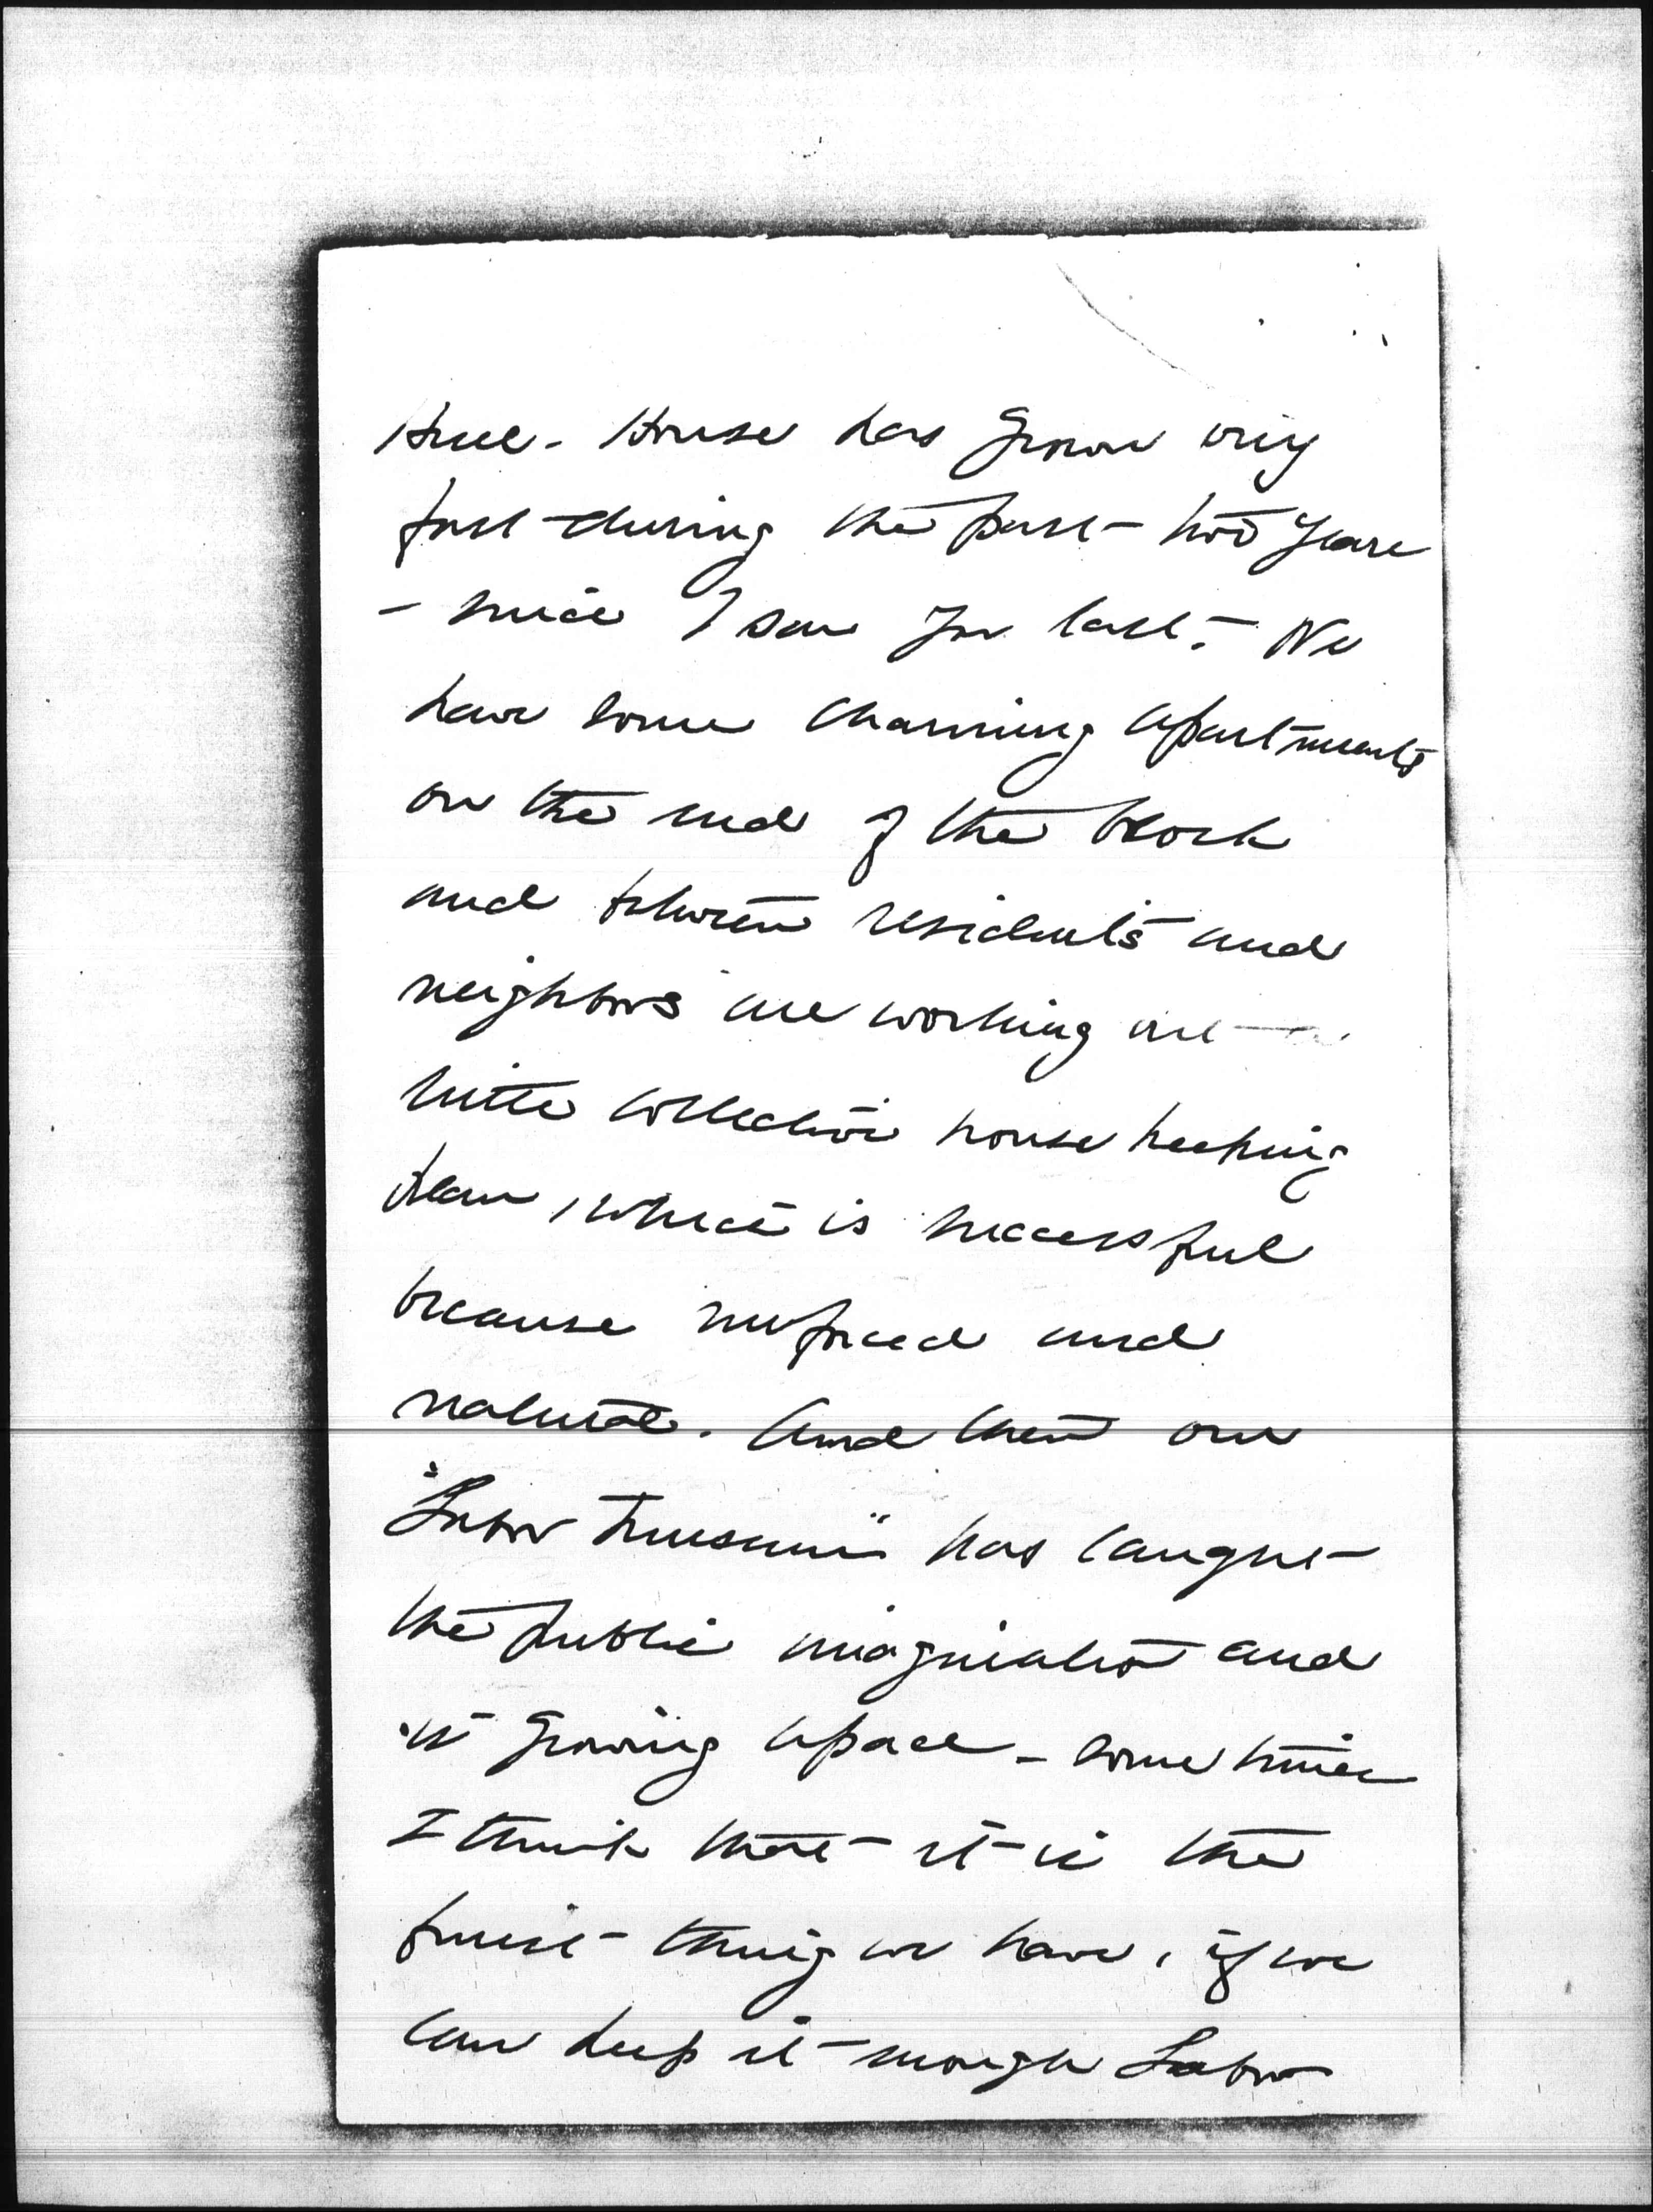 Hull-House has grown very
fast during the past two years
- since I saw you last. We
have some charming apartments
on the end of the block
and between residents and
neighbors are working out
little collective house keeping
plan, which is successful
because unforced and
natural. And then our
"Labor Museum" has caught
the public imagination and
is growing apace - some times
I think that it is the
finest thing we have, if we
can keep it enough Labor